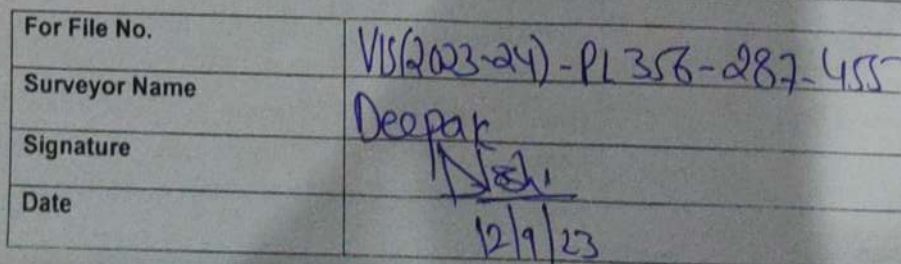 For File No. VIS(2023-24)-PL356-287-455
Surveyor Name Deepak
Signature
Date 12/9/23